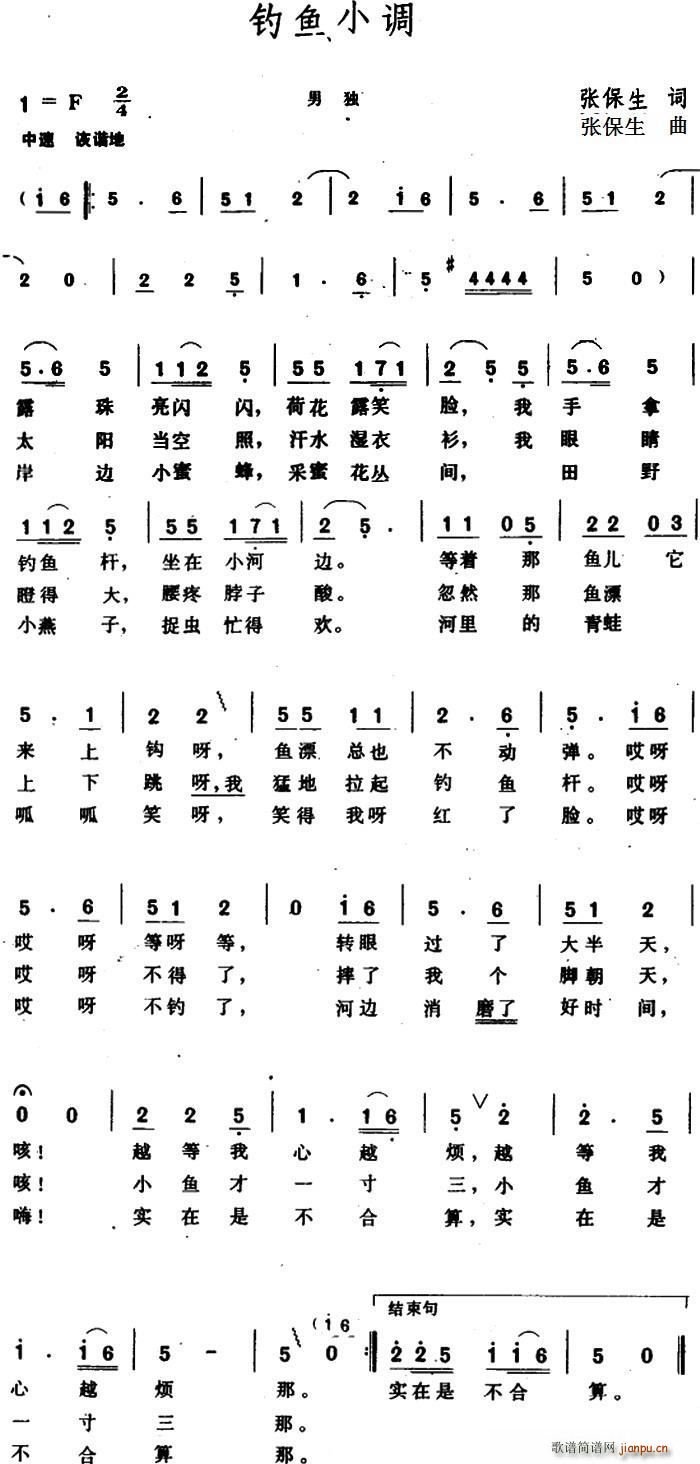 钓鱼小调
1 = F 2/4 男独 张保生 词
中速 诙谐地 张保生 曲
( i 6 |: 5 . 6 | 5 1 2 | 2 i 6 | 5 . 6 | 5 1 2 |
2 0 | 2 2 5 | 1 . 6 | 5 #4444 | 5 0 ) |
5 . 6 5 | 1 1 2 5 | 5 5 1 7 1 | 2 5 5 | 5 . 6 5 |
露 珠 亮闪 闪，荷花 露笑 脸，我 手 拿
太 阳 当空 照，汗水 湿衣 衫，我 眼 睛
岸 边 小蜜 蜂，采蜜 花丛 间， 田 野
1 1 2 5 | 5 5 1 7 1 | 2 5 . | 1 1 0 5 | 2 2 0 3 |
钓鱼 杆，坐在 小河 边。 等着 那 鱼儿 它
瞪得 大，腰疼 脖子 酸。 忽然 那 鱼漂
小燕 子，捉虫 忙得 欢。 河里 的 青蛙
5 . 1 | 2 2 | 5 5 1 1 | 2 . 6 | 5 . i 6 |
来 上 钩 呀，鱼漂 总也 不 动 弹。哎呀
上 下 跳 呀，我 猛地 拉起 钓 鱼 杆。哎呀
呱 呱 笑 呀，笑得 我呀 红 了 脸。哎呀
5 . 6 | 5 1 2 | 0 i 6 | 5 . 6 | 5 1 2 |
哎 呀 等呀 等， 转眼 过 了 大半 天，
哎 呀 不得 了， 摔了 我 个 脚朝 天，
哎 呀 不钓 了， 河边 消 磨了 好时 间，
0 0 | 2 2 5 | 1 . 1 6 | 5 ∨ 2 | 2 . 5 |
咳！ 越 等 我 心 越 烦，越 等 我
咳！ 小 鱼 才 一 寸 三，小 鱼 才
嗨！ 实 在 是 不 合 算，实 在 是
结束句
i . i 6 | 5 - | 5 0 (i 6 :| 2 2 . 5 i i 6 | 5 0 ‖
心 越 烦 那。 实在是 不合 算。
一 寸 三 那。
不 合 算 那。
歌谱简谱网 jianpu.cn